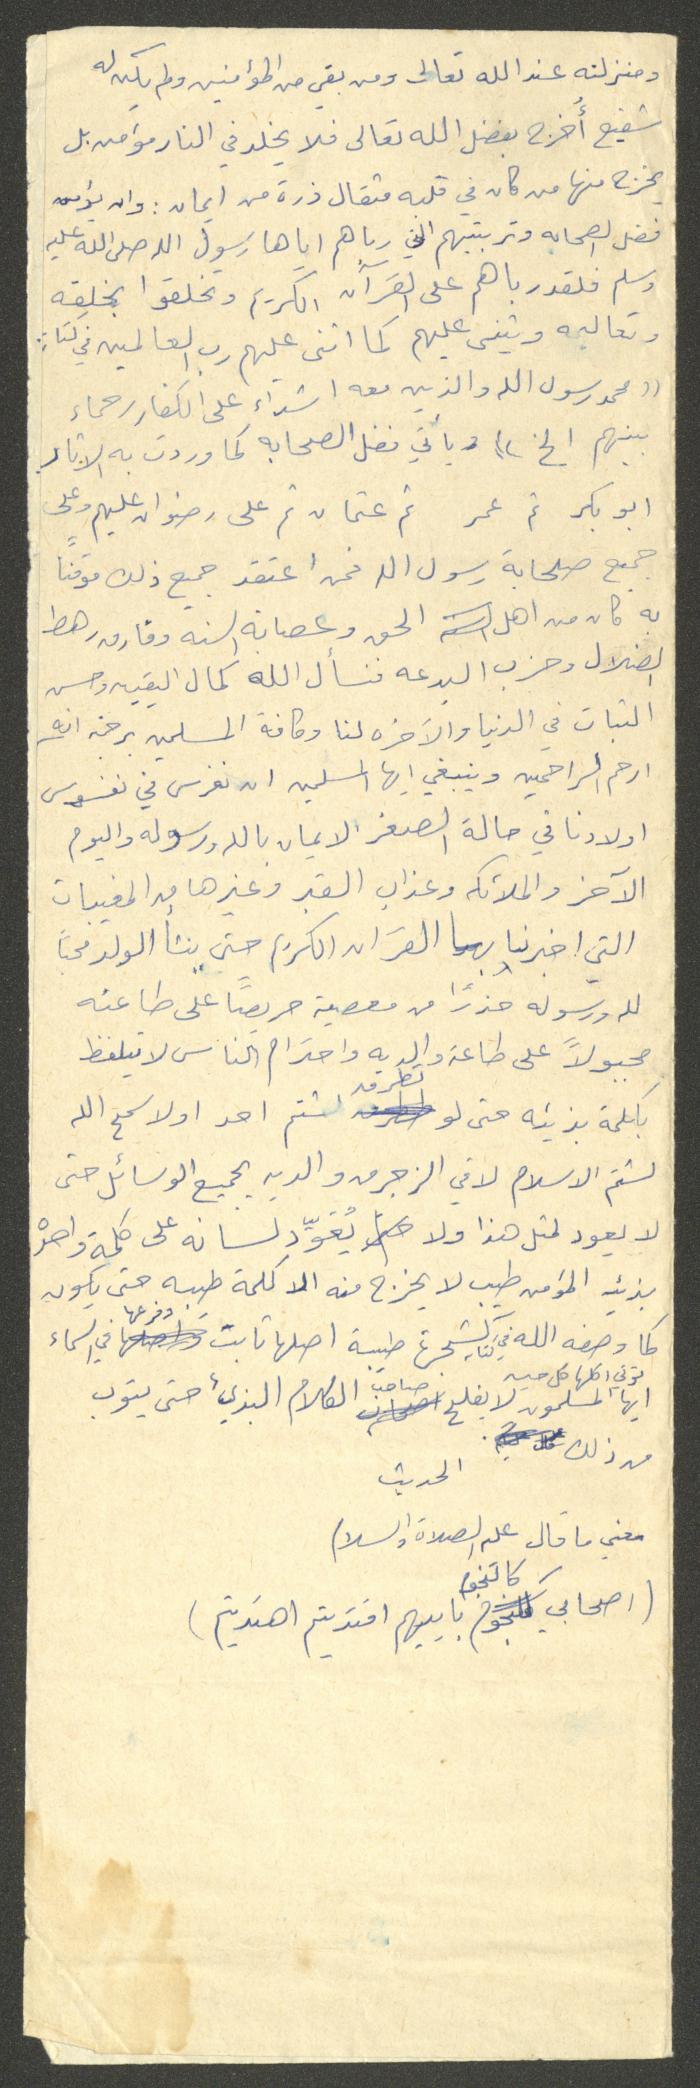 ومنزلته عند الله تعالى ومن بقي من المؤمنين ولم يكن له
شفيع أُخرج بفضل الله تعالى فلا يخلد في النار مؤمن بل
يخرج منها من كان في قلبه مثقال ذرة من ايمان : وان يؤمن
فضل الصحابه وتربيتهم التي رباهم اياها رسول الله صلى الله عليه
وسلم فلقد رباهم على القرآن الكريم وتخلقوا بخلقه
وتعاليمه ويثنى عليهم كما اثنى عليهم رب العالمين في كتابه :
(( محمد رسول الله والذين معه اشداء على الكفار رحماء
بينهم الخ )) ويأتي فضل الصحابه كما وردت به الاثار
ابو بكر ثم عمر ثم عثمان ثم علي رضوان عليهم وعلى
جميع صحابة رسول الله فمن اعتقد جميع ذلك موقنًا
به كان من اهل الحق وعصابة السنه وفارق رهط
الضلال وحزب البدعه فنسأل الله كمال اليقين وحسن
الثبات في الدنيا والآخره لنا وكافة المسلمين برحمته انه
ارحم الراحمين وينبغي ايها المسلمين ان نغرس في نفوس
اولادنا في حالة الصغر الايمان بالله ورسوله واليوم
الآخر والملائكه وعذاب القبر وغيرها من المغيبات
التي اخبرنا بها القرآن الكريم حتى ينشأ الولد محبًا
لله ورسوله حذرًا من معصية حريصًا على طاعته
مجبولاً على طاعة والديه واحترام الناس لا يتلفظ
بكلمة بذيئه حتى لو تطرق لشتم احد اولا سمح الله
لشتم الاسلام لاقي الزجر من والديه بجميع الوسائل حتى
لا يعود لمثل هذا ولا يُعَوِّد لسانه على كلمة واحدة
بذيئه المؤمن طيب لا يخرج منه الا كلمة طيبه حتى يكون
كما وصفه الله في كتابه كشجرة طيبة اصلها ثابت وفرعها في السماء
تؤتي اكلها كل حين
ايها المسلمون لا يفلح صاحب الكلام البذيء حتى يتوب
من ذلك
الحديث
معنى ما قال عليه الصلاة والسلام
(اصحابي كالنجوم بأييهم اقتديتم اهتديتم)